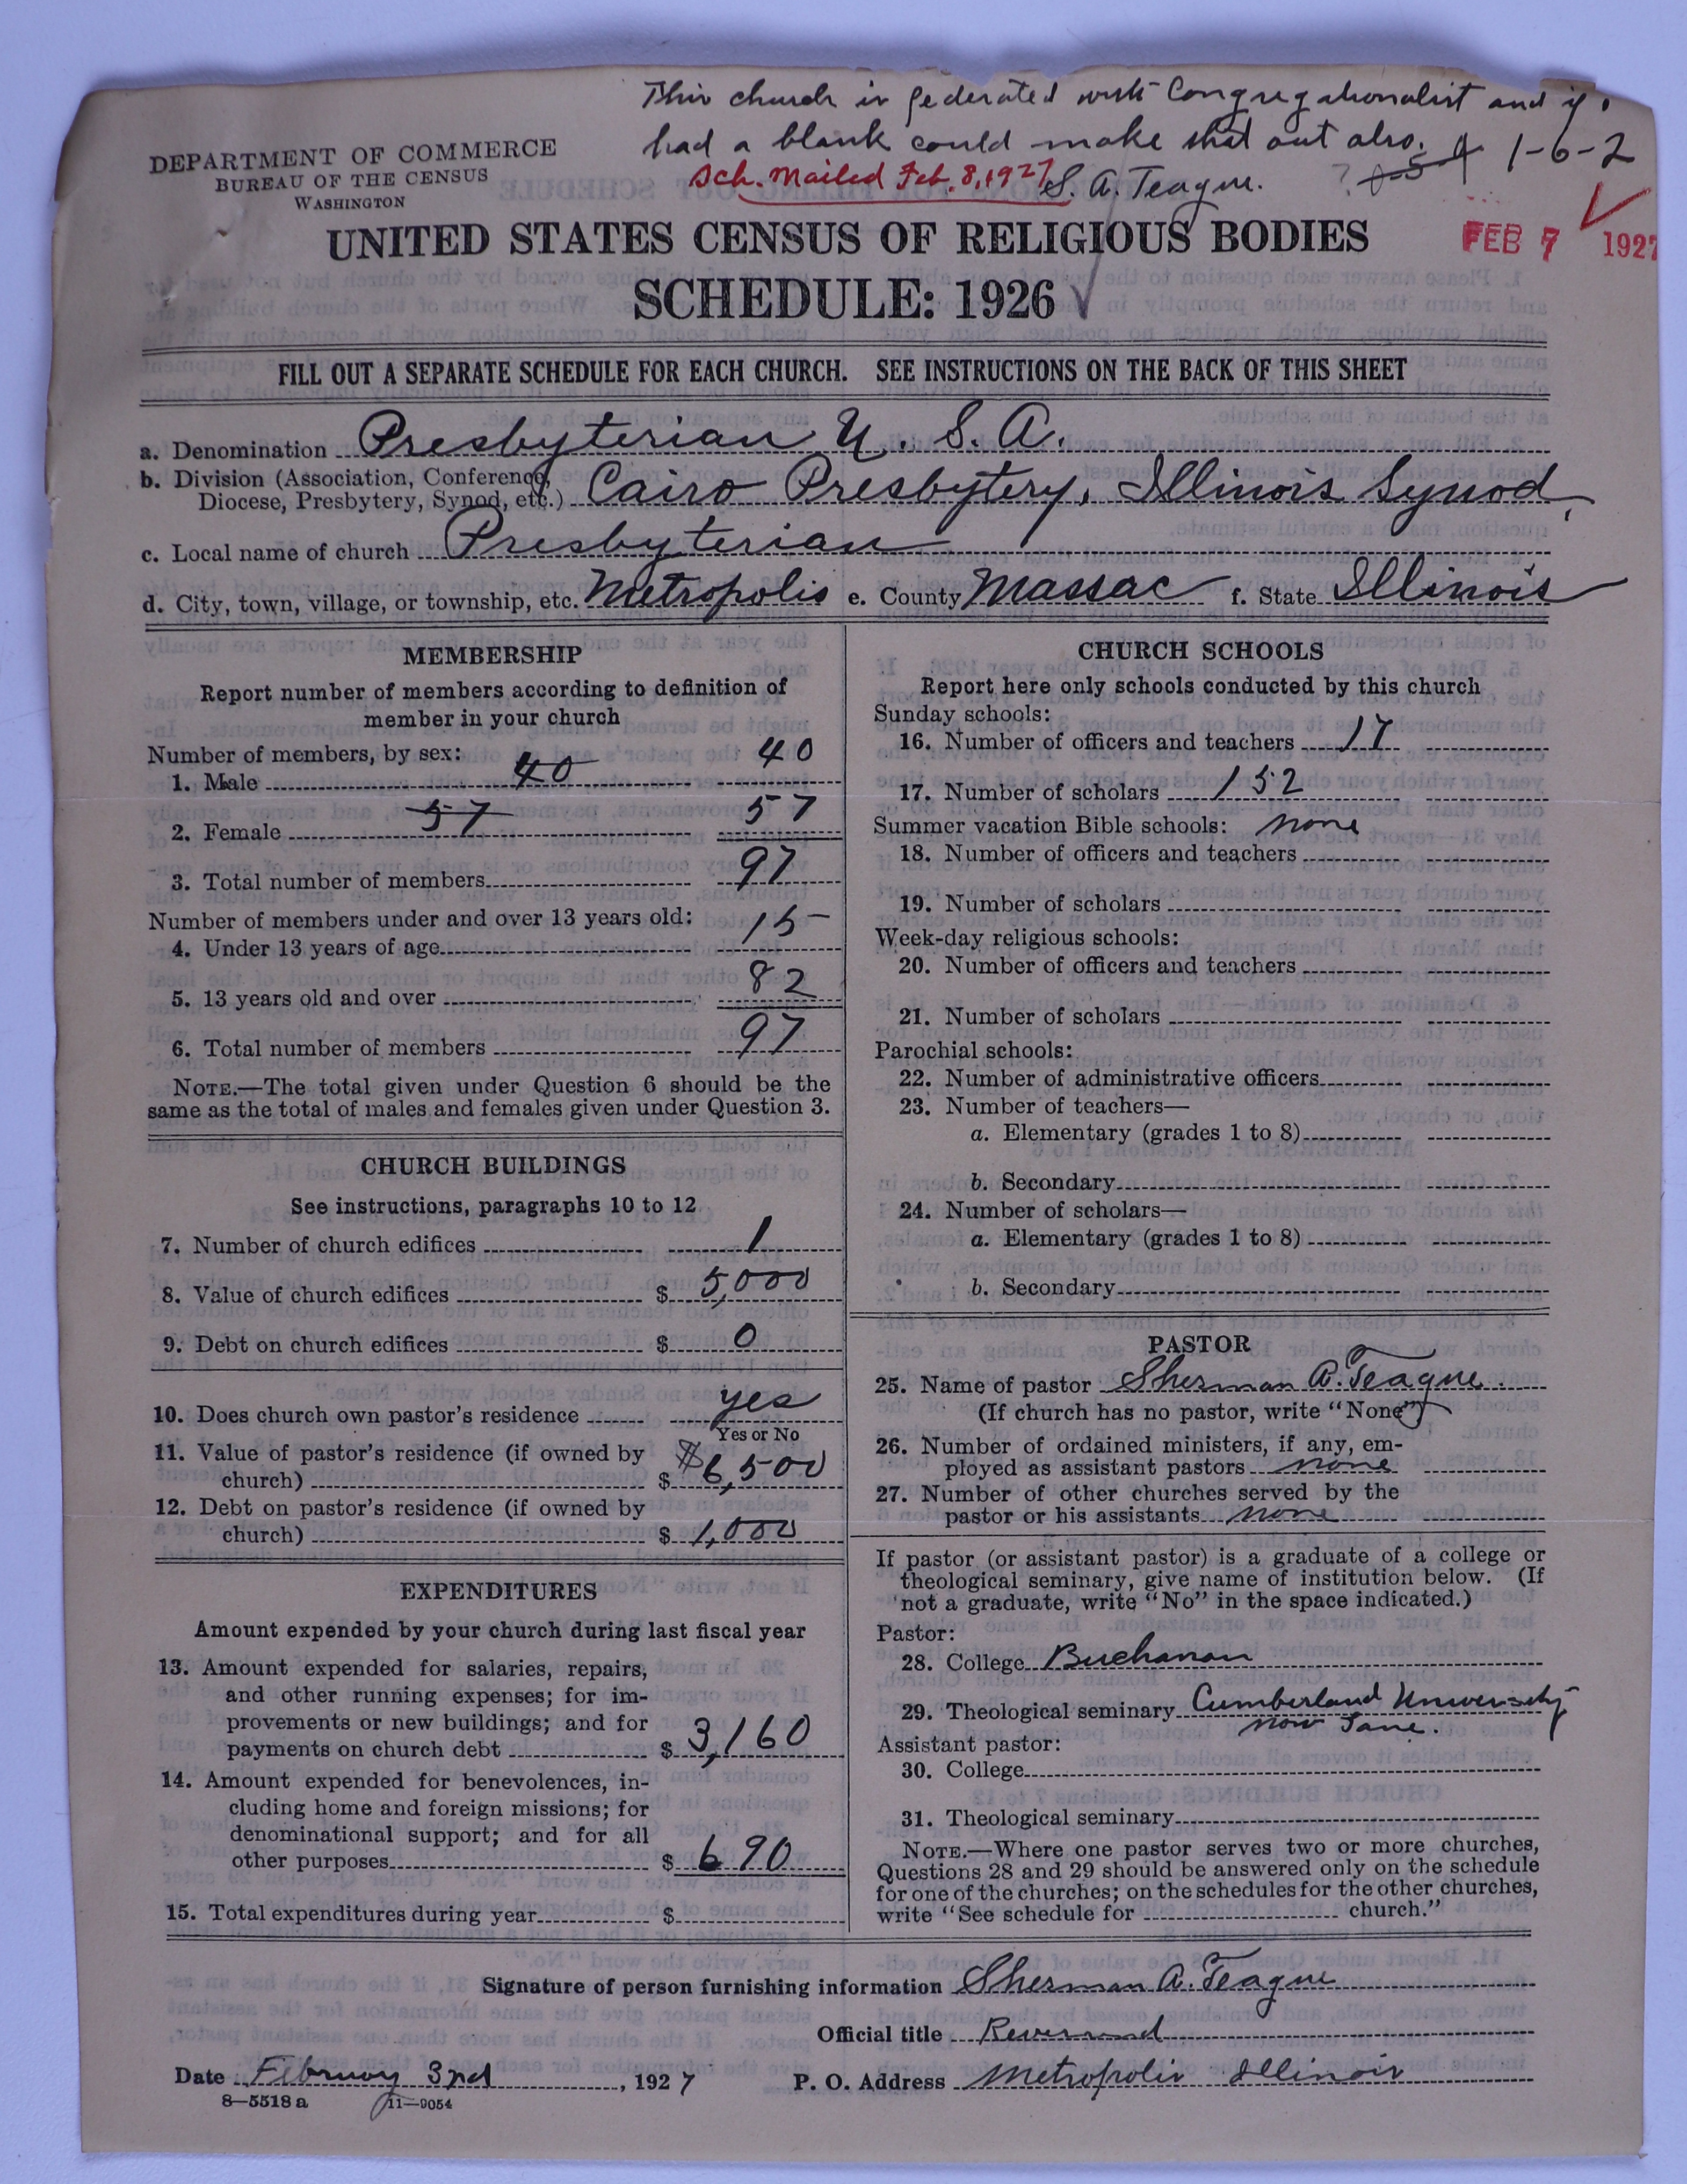 This church is federated with Congregationalist and if I
had a blank could make that out also.
S. A. Teague.
Sch. Mailed Feb. 8, 1927
1-6-2
DEPARTMENT OF COMMERCE
BUREAU OF THE CENSUS
WASHINGTON
FEB 7 1927
UNITED STATES CENSUS OF RELIGIOUS BODIES
SCHEDULE: 1926
FILL OUT A SEPARATE SCHEDULE FOR EACH CHURCH. SEE INSTRUCTIONS ON THE BACK OF THIS SHEET
a. Denomination Presbyterian U. S. A.
b. Division (Association, Conference, Diocese, Presbytery, Synod, etc.) Cairo Presbytery, Illinois Synod,
c. Local name of church Presbyterian
d. City, town, village, or township, etc. Metropolis e. County Massac f. State Illinois
MEMBERSHIP
Report number of members according to definition of
member in your church
Number of members, by sex:
1. Male 40 40
2. Female 57 57
3. Total number of members 97
Number of members under and over 13 years old:
4. Under 13 years of age 15
5. 13 years old and over 82
6. Total number of members 97
NOTE.—The total given under Question 6 should be the
same as the total of males and females given under Question 3.
CHURCH BUILDINGS
See instructions, paragraphs 10 to 12
7. Number of church edifices 1
8. Value of church edifices $ 5,000
9. Debt on church edifices $ 0
10. Does church own pastor's residence yes
Yes or No
11. Value of pastor's residence (if owned by
church) $ $6,500
12. Debt on pastor's residence (if owned by
church) $ 1,000
EXPENDITURES
Amount expended by your church during last fiscal year
13. Amount expended for salaries, repairs,
and other running expenses; for im-
provements or new buildings; and for
payments on church debt $ 3,160
14. Amount expended for benevolences, in-
cluding home and foreign missions; for
denominational support; and for all
other purposes $ 690
15. Total expenditures during year $
CHURCH SCHOOLS
Report here only schools conducted by this church
Sunday schools:
16. Number of officers and teachers 17
17. Number of scholars 152
Summer vacation Bible schools: none
18. Number of officers and teachers
19. Number of scholars
Week-day religious schools:
20. Number of officers and teachers
21. Number of scholars
Parochial schools:
22. Number of administrative officers
23. Number of teachers—
a. Elementary (grades 1 to 8)
b. Secondary
24. Number of scholars—
a. Elementary (grades 1 to 8)
b. Secondary
PASTOR
25. Name of pastor Sherman A. Teague.
(If church has no pastor, write "None")
26. Number of ordained ministers, if any, em-
ployed as assistant pastors none
27. Number of other churches served by the
pastor or his assistants none
If pastor (or assistant pastor) is a graduate of a college or
theological seminary, give name of institution below. (If
not a graduate, write "No" in the space indicated.)
Pastor:
28. College Buchanan
29. Theological seminary Cumberland University
now
Assistant pastor:
30. College
31. Theological seminary
NOTE.—Where one pastor serves two or more churches,
Questions 28 and 29 should be answered only on the schedule
for one of the churches; on the schedules for the other churches,
write "See schedule for church."
Signature of person furnishing information Sherman A. Teague
Official title Reverend
Date February 3rd, 1927 P. O. Address Metropolis Illinois
8—5518 a 11—9054